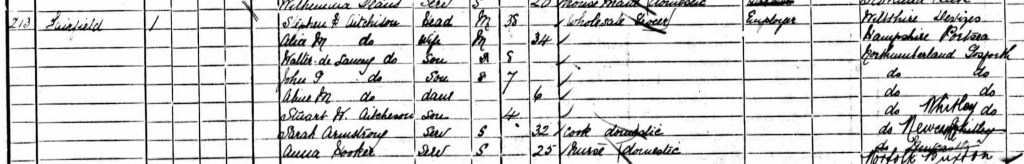 Wilhelmina Serv S 20 House Maid Domestic
213 Fairfield 1 Stephen F Aitchison Head M 38 Wholesale Grocer Employer Wiltshire Devizes
Alice M do Wife M 34 Hampshire Portsea
Walter de Lancey do Son S 8 Northumberland Gosforth
John P do Son S 7 do do
Aline M do daur 6 do do
Stuart H. Aitchison Son 4 do Whitley do
Sarah Armstrong Serv S 32 Cook domestic do Whitley
Anna Hooker Serv S 25 Nurse domestic Norfolk Brixton